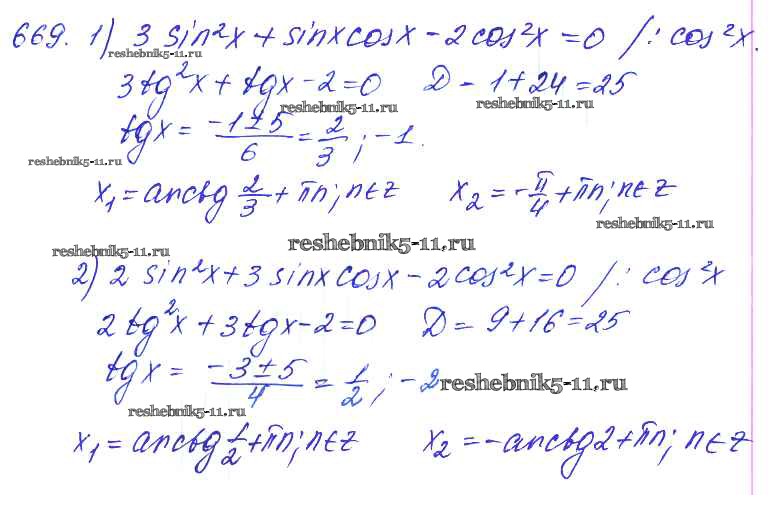 669. 1) 3 sin²x + sinx cosx - 2 cos²x = 0 /: cos²x.
reshebnik5-11.ru
3tg²x + tgx - 2 = 0 D - 1 + 24 = 25
reshebnik5-11.ru reshebnik5-11.ru
tgx = (-1 ± 5)/6 = 2/3 ; -1.
reshebnik5-11.ru
x₁ = arctg 2/3 + πn; n∈Z x₂ = -π/4 + πn; n∈Z
reshebnik5-11.ru
reshebnik5-11.ru
reshebnik5-11.ru
2) 2 sin²x + 3 sinx cosx - 2cos²x = 0 /: cos²x
2tg²x + 3tgx - 2 = 0 D = 9 + 16 = 25
tgx = (-3 ± 5)/4 = 1/2 ; -2
reshebnik5-11.ru
reshebnik5-11.ru
x₁ = arctg 1/2 + πn; n∈Z x₂ = -arctg2 + πn; n∈Z